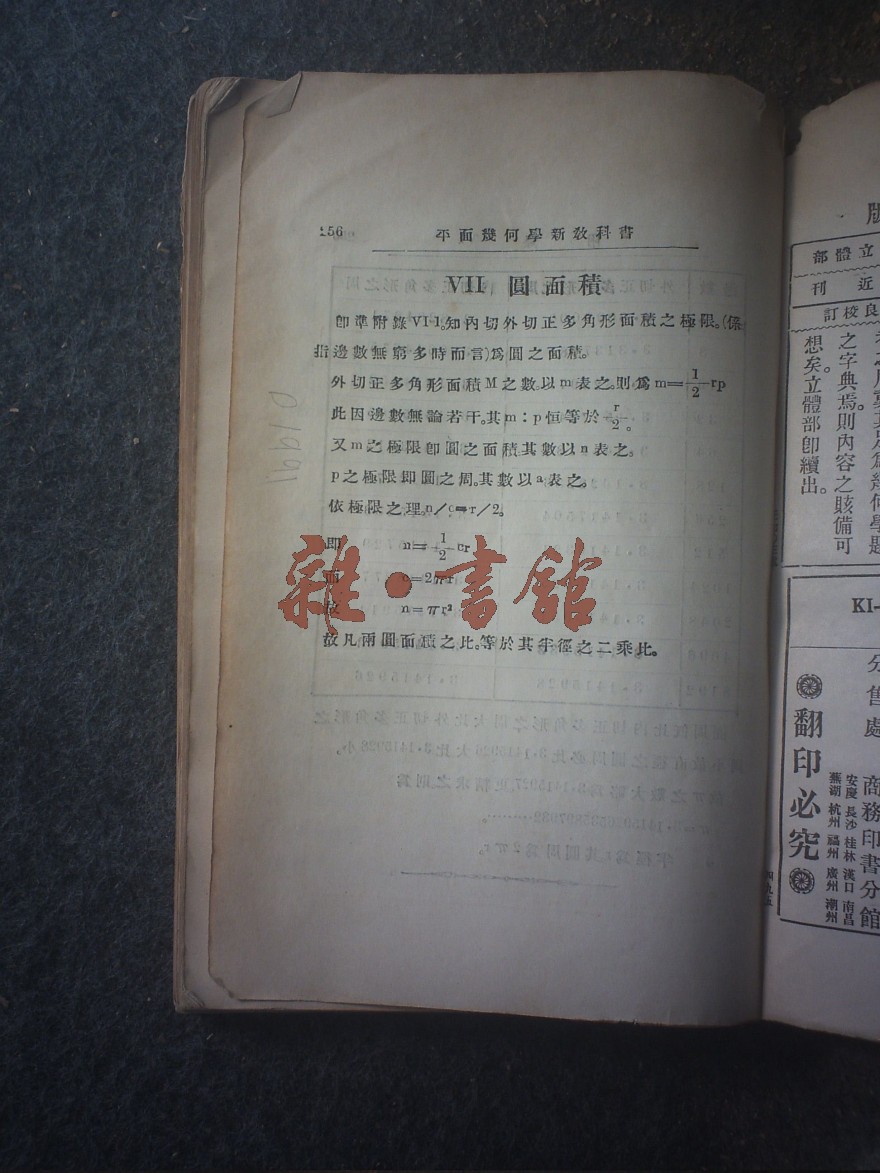 256 平面幾何學新敎科書
VII 圓面積
卽準附錄VI 1。知內切外切正多角形面積之極限。(係
指邊數無窮多時而言)爲圓之面積。
外切正多角形面積M之數。以m表之。則爲m=1/2 rp
此因邊數無論若干。其m:p恒等於r/2。
又m之極限卽圓之面積其數以n表之。
p之極限卽圓之周。其數以a表之。
依極限之理。n/c=r/2。
卽 n=1/2 cr
而 c=2πr
故 n=πr²
故凡兩圓面積之比。等於其半徑之二乘比。
雜·書館
版
立體部
近刊
良校訂
之字典焉。則內容之賅備可
想矣。立體部卽續出。
KI-
分售處
翻印必究
商務印書分館
安慶 長沙 桂林 漢口 南昌
蕪湖 杭州 福州 廣州 潮州
1910